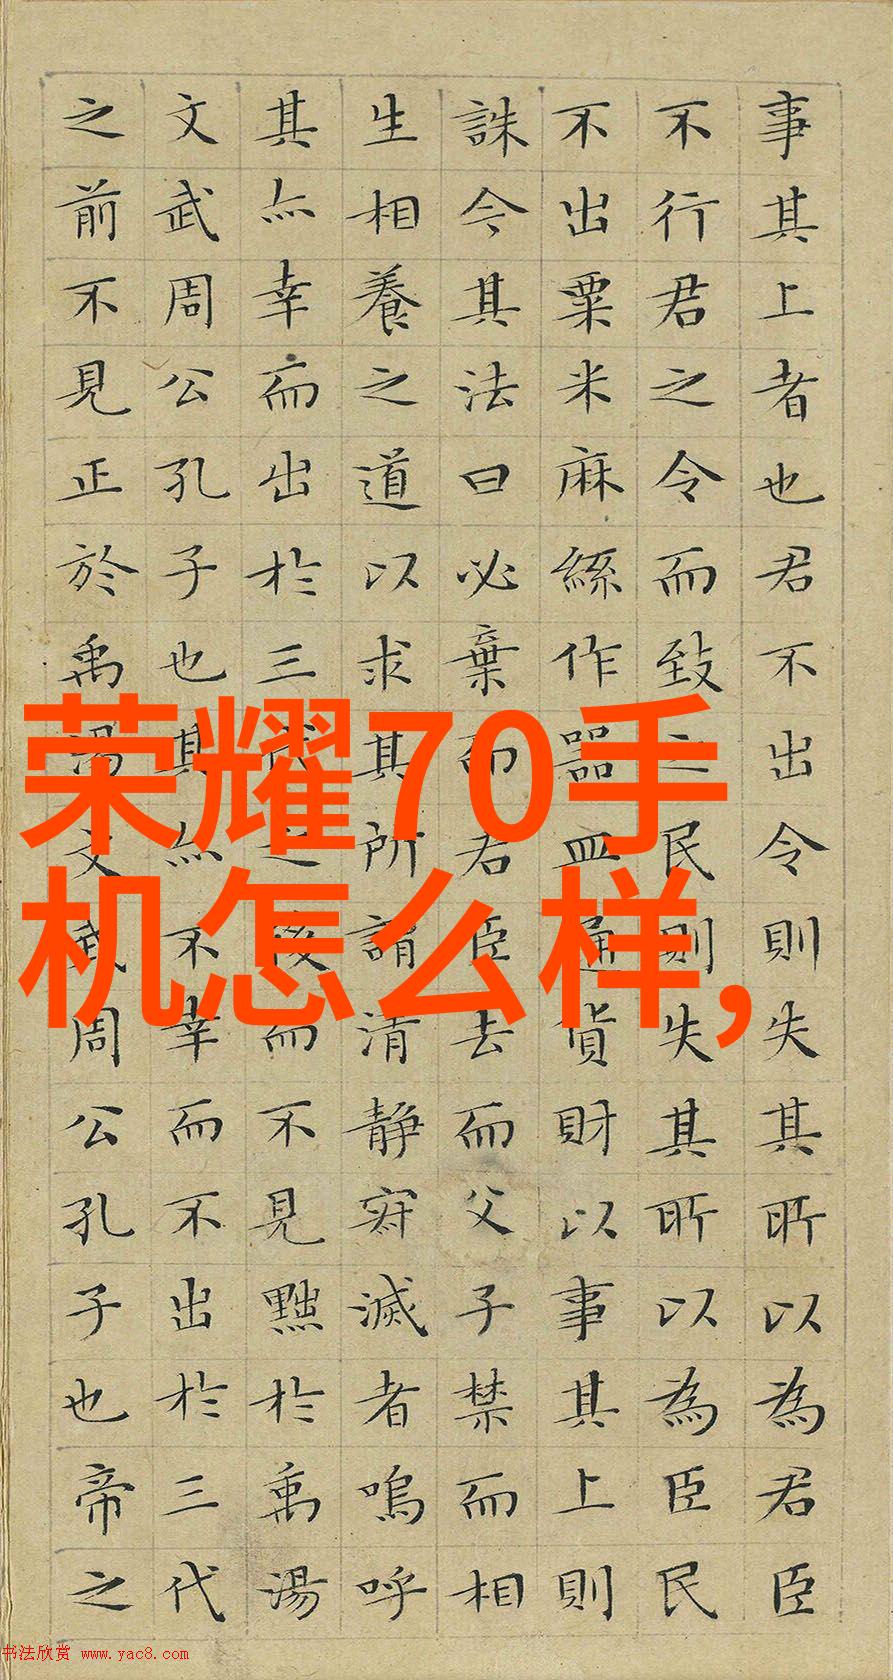 事其上者也君不出令則失其所以為君臣
不行君之令而致之民則失其所以為臣民
不出粟米麻絲作器皿通貨財以事其上則
誅今其法曰必棄而君臣去而父子禁而相
生相養之道以求其所謂清靜寂滅者嗚呼
其亦幸而出於三代之後而不見黜於禹湯
文武周公孔子也其亦不幸而不出於三代
之前不見正於禹湯文武周公孔子也帝之
荣耀70手
机怎么样,
书法欣赏 www.yac8.com